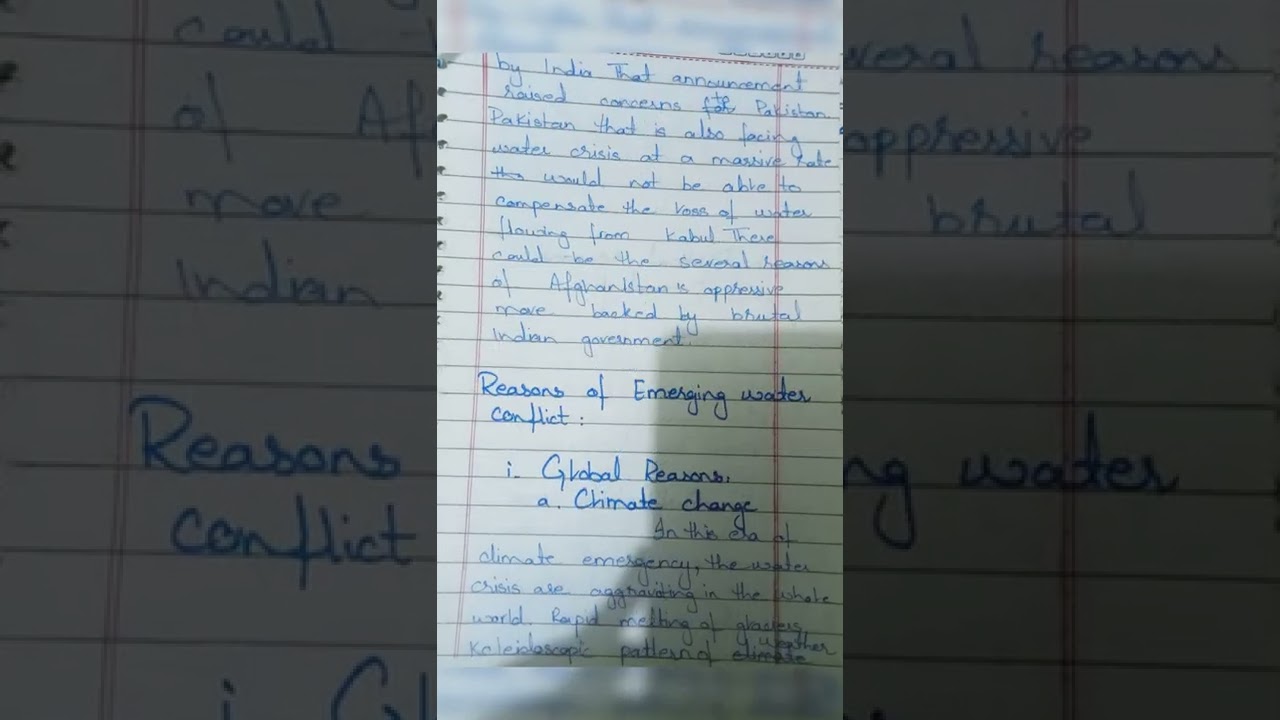 by India That announcement
raised concerns to Pakistan
Pakistan that is also facing
water crisis at a massive rate
would not be able to
compensate the loss of water
flowing from Kabul There
could be the several reasons
of Afghanistan's oppressive
move backed by brutal
Indian government.
Reasons of Emerging water
conflict :
i. Global Reasons.
a. Climate change
In this era of
climate emergency, the water
crisis are aggravating in the whole
world. Rapid melting of glaciers,
Kaleidoscopic pattern of weather